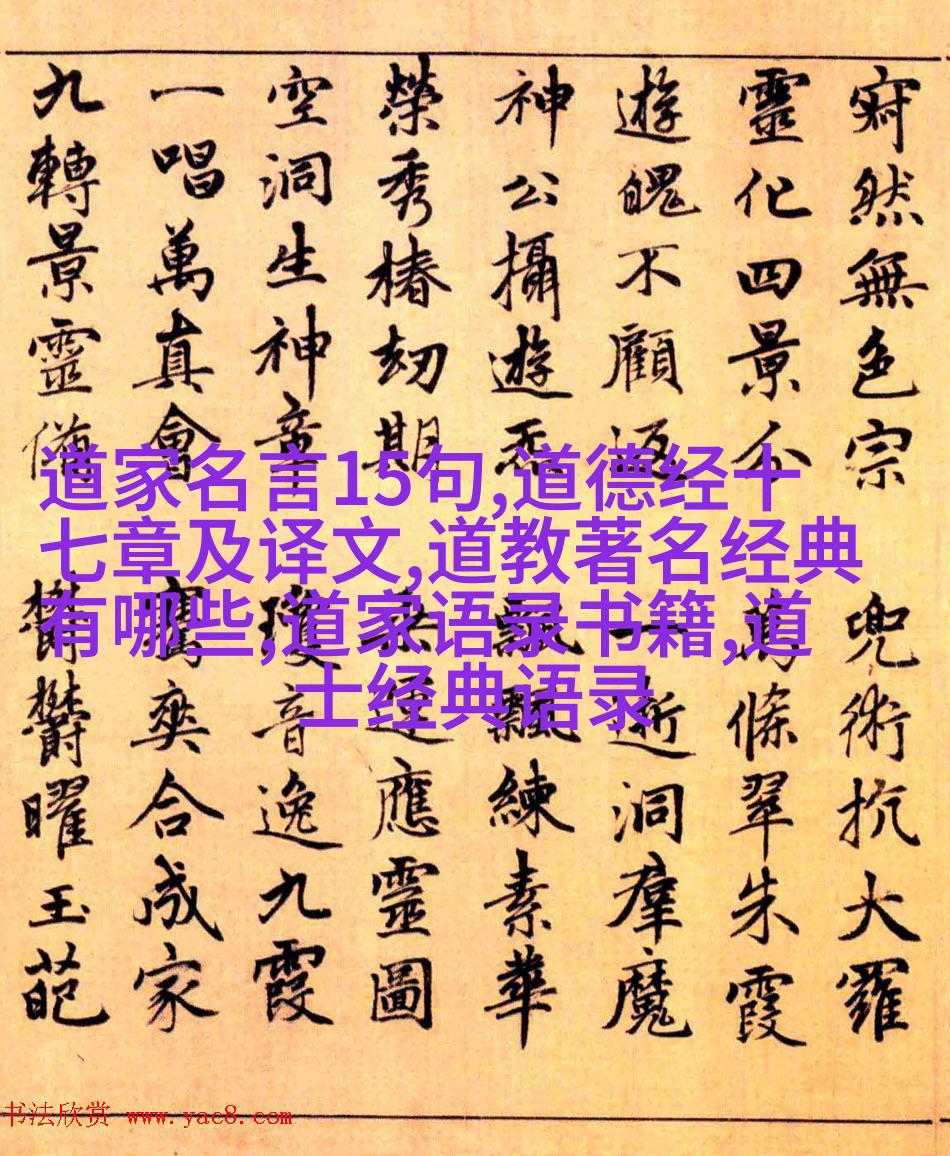 寂然無色宗 兜術抗大羅
靈化四景分 萬條翠朱霞
遊魂不顧返 一逝洞羣魔
神公攝遊炁 飄飄練素華
榮秀椿劫期 應靈圖
空洞生神章 瓊音逸九霞
一唱萬真會 爽合成家
九轉景靈 欝欝曜玉葩
道家名言15句,道德经十
七章及译文,道教著名经典
有哪些,道家语录书籍,道
士经典语录
书法欣赏 www.yac8.com